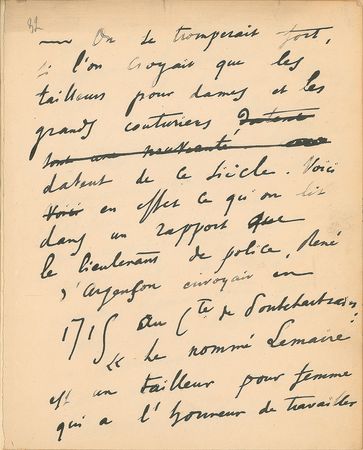 82
— On se tromperait fort,
si l'on croyait que les
tailleurs pour dames et les
grands couturiers datent
sont une nouveauté
datent de ce siècle. Voici
Voici en effet ce qu'on lit
dans un rapport que
le lieutenant de police, René
d'Argenson envoyait en
1715 au Cte de Pontchartrain
« Le nommé Lemaire
est un tailleur pour femme
qui a l'honneur de travailler